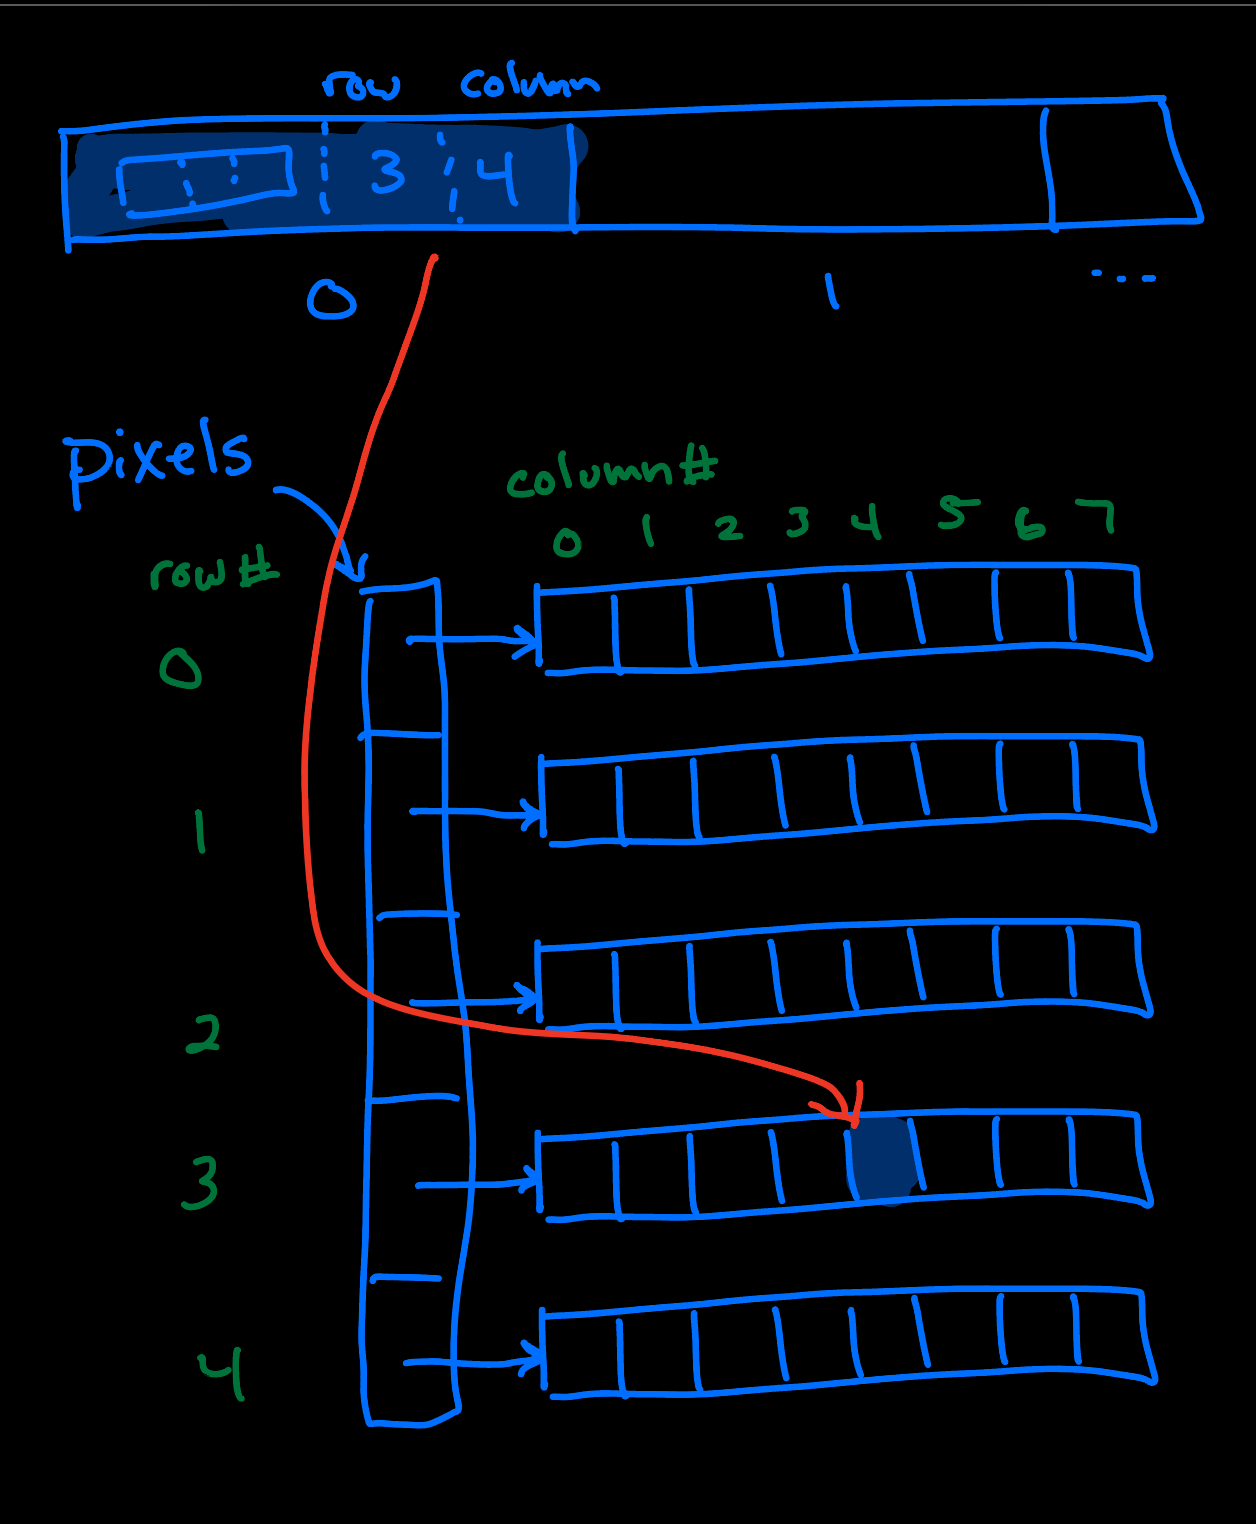 row column
3 4
0 1 ...
pixels
column#
0 1 2 3 4 5 6 7
row#
0
1
2
3
4